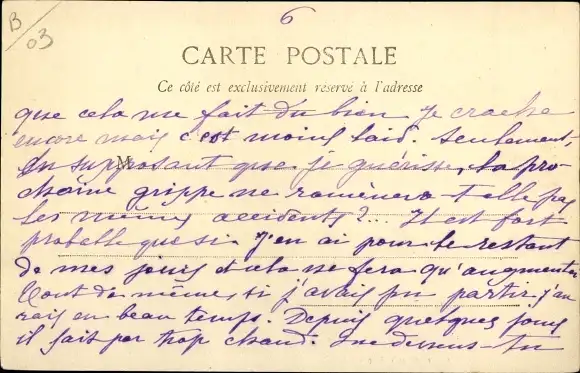 B/03
6
CARTE POSTALE
Ce côté est exclusivement réservé à l'adresse
que cela me fait du bien. Je crache
encore mais c'est moins laid. Seulement,
En supposant que je guérisse, la pro-
M
chaine grippe ne ramènera t elle pas
les mêmes accidents?... Il est fort
probable que si. J'en ai pour le restant
de mes jours et cela ne fera qu'augmenter
Tout de même si j'avais pu partir, j'au
rais eu beau temps. Depuis quelques jours
il fait par trop chaud. Me devines-tu